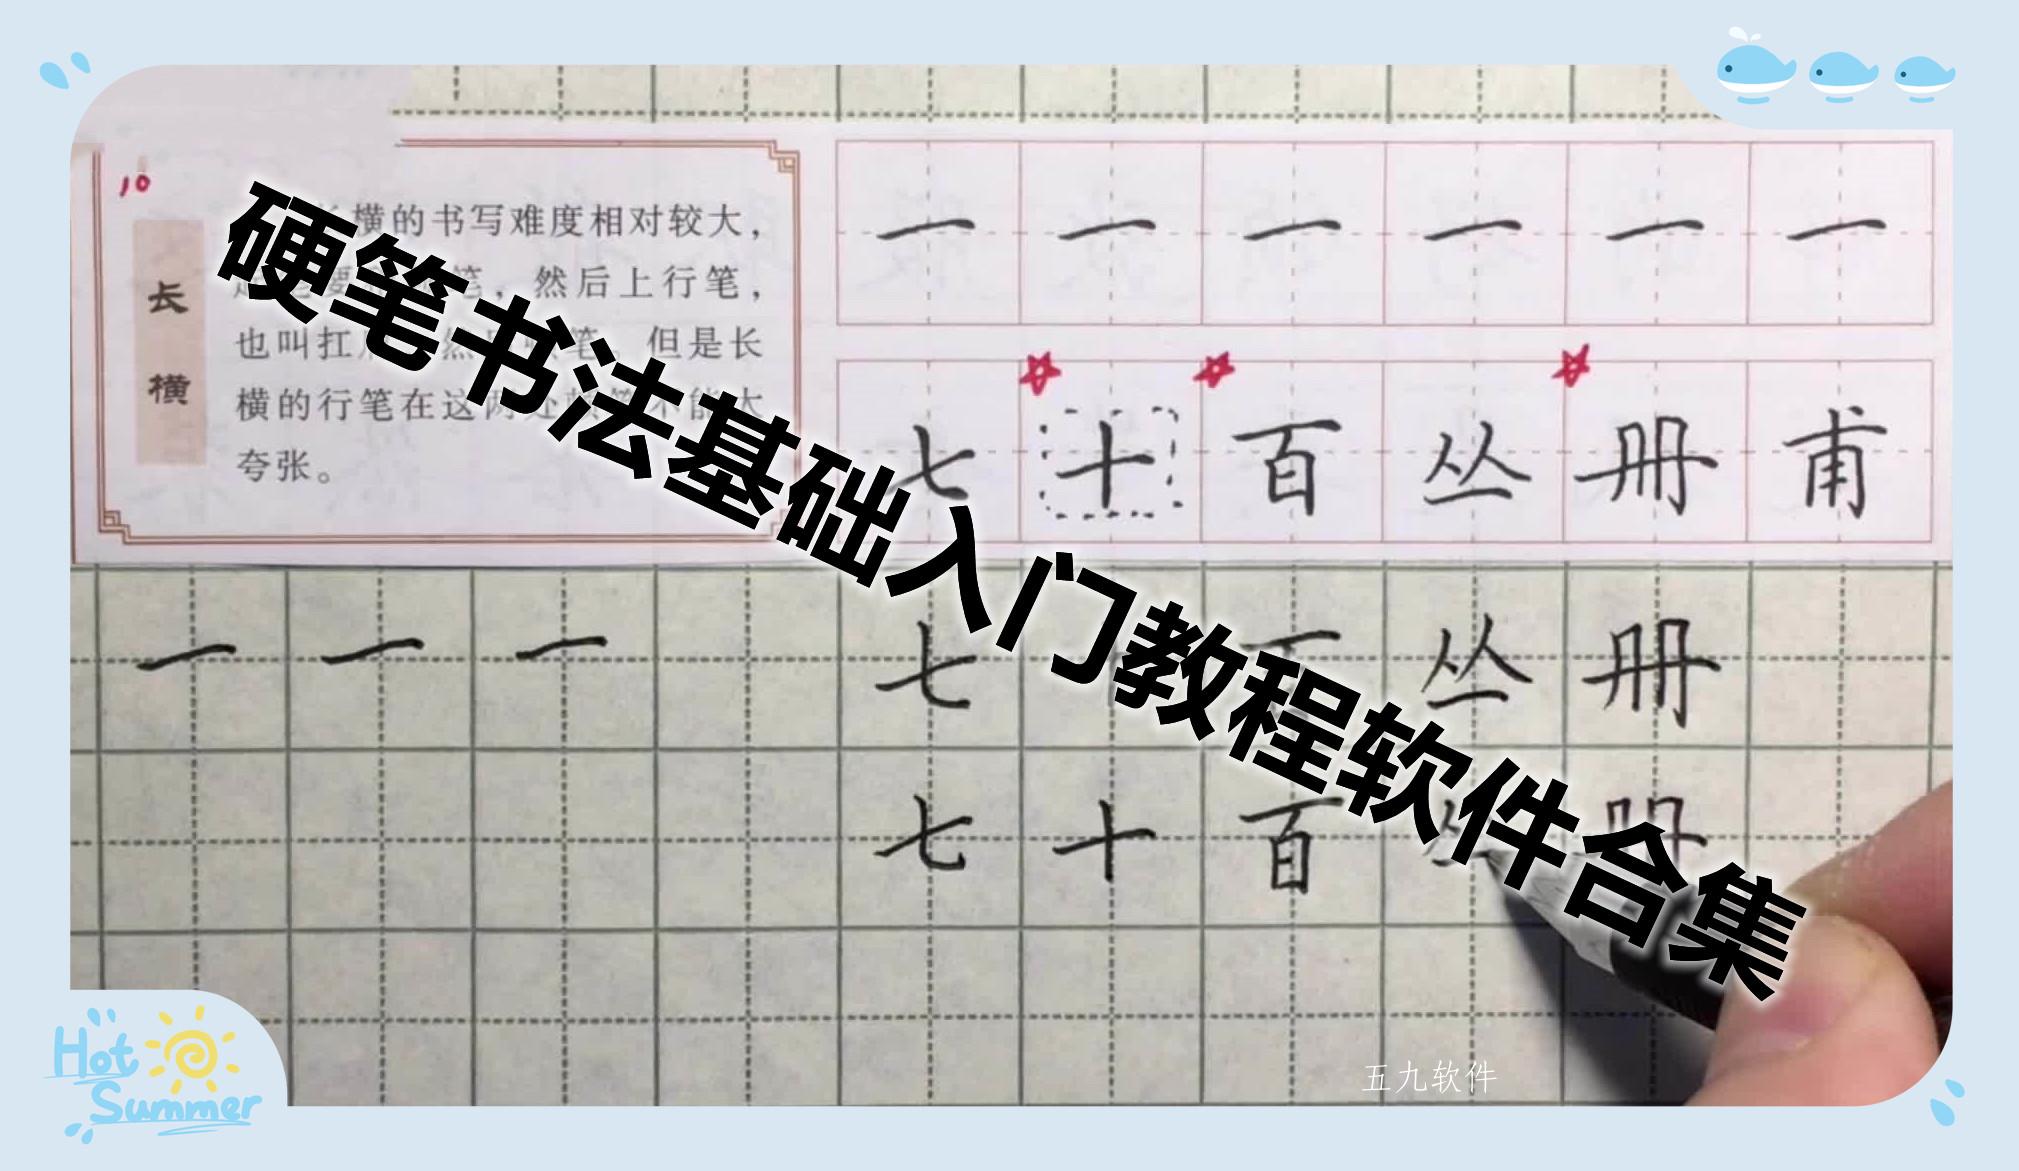 10
长横
横的书写难度相对较大，
笔，然后上行笔，
也叫扛 笔。但是长
横的行笔在这 不能太
夸张。
一 一 一 一 一 一
七 十 百 丛 册 甫
硬笔书法基础入门教程软件合集
一 一 一 七 丛 册
七 十 百
五九软件
Hot
Summer